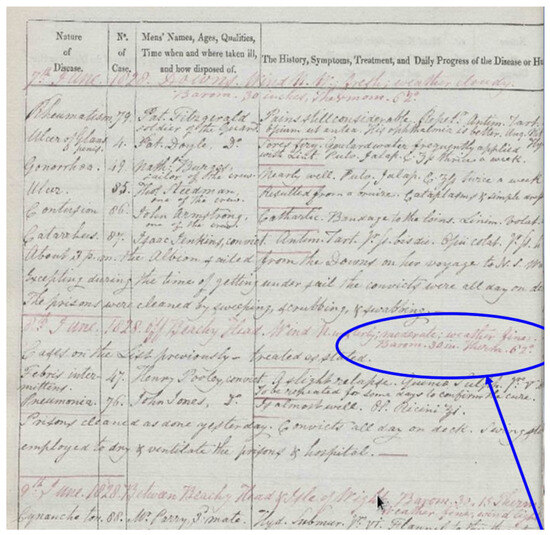 Nature of Disease.
Nº. of Case.
Mens' Names, Ages, Qualities, Time when and where taken ill, and how disposed of.
The History, Symptoms, Treatment, and Daily Progress of the Disease or Hu
7th June. 1828. Downs. Wind N. W. fresh; weather cloudy.
Barom. 30 inches, Thermom. 62°.
Rheumatism 79. Pat. Fitzgerald Pains still considerable. Repet. Antim. Tart.
soldier of the Guard. Opium ut antea. His ophthalmia is better.
Ulcer of Glans 4. Pat. Doyle Dº Sores fiery. Goulard water frequently applied
penis. with Lint. Pulv. Jalap. thrice a week.
Gonorrhœa. 49. Nath. Burges Nearly well. Pulv. Jalap. twice a week
sailor of the crew.
Ulcer. 85. Thos Steedman Resulted from a bruise. Cataplasms & simple
one of the crew.
Contusion 86. John Armstrong, Cathartic. Bandage to the loins. Linim. Volat.
one of the crew.
Catarrhus. 87. Isaac Jenkins, convict. Antim. Tart.
About 3 p.m. the Albion sailed from the Downs on her voyage to N. S. W
Excepting during the time of getting under sail the convicts were all day on de
The prisons were cleaned by sweeping, scrubbing, & swabbing.
8th June. 1828. Off Beachy Head. Wind moderate; weather fine.
Barom. 30 in. Therm. 62°.
Cases on the List previously treated as stated.
Febris inter- 47. Henry Pooley, convict. A slight relapse. Quinæ Sulph.
mittens. To be repeated for some days to confirm the cure.
Pneumonia. 76. John Jones, Dº Is almost well. Ol. Ricini
Prisons cleaned as done yesterday. Convicts all day on deck.
employed to dry & ventilate the prisons & hospital.
9th June. 1828. Between Beachy Head & Isle of Wight. Barom. 30.
Weather fine; wind
Cynanche ton. 88. Mr. Parry, 1. mate. Hyd. Submur. Flannel to the